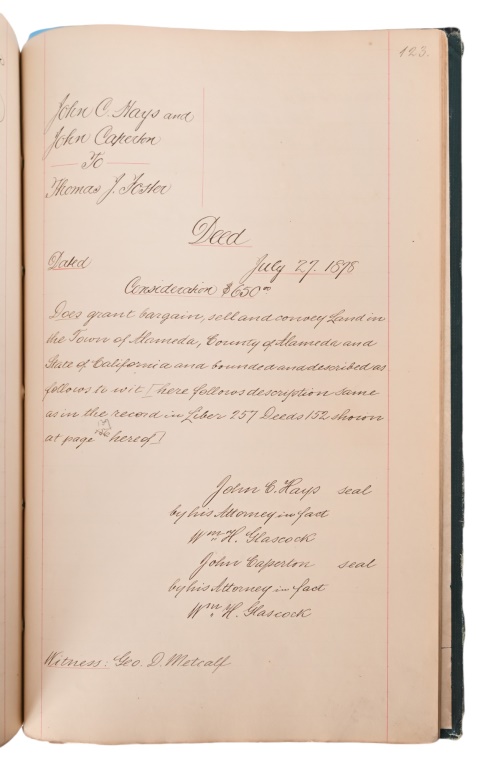 123.
John C. Hays and
John Caperton
To
Thomas J. Foster
Deed
Dated July 27. 1878
Consideration $650⁰⁰
Does grant bargain, sell and convey Land in
the Town of Alameda, County of Alameda and
State of California and bounded and described as
follows to wit [here follows description same
as in the record in Liber 257 Deeds 152 shown
at page hereof]
John C. Hays seal
by his Attorney in fact
Wm H. Glascock
John Caperton seal
by his Attorney in fact
Wm H. Glascock
Witness: Geo. D. Metcalf